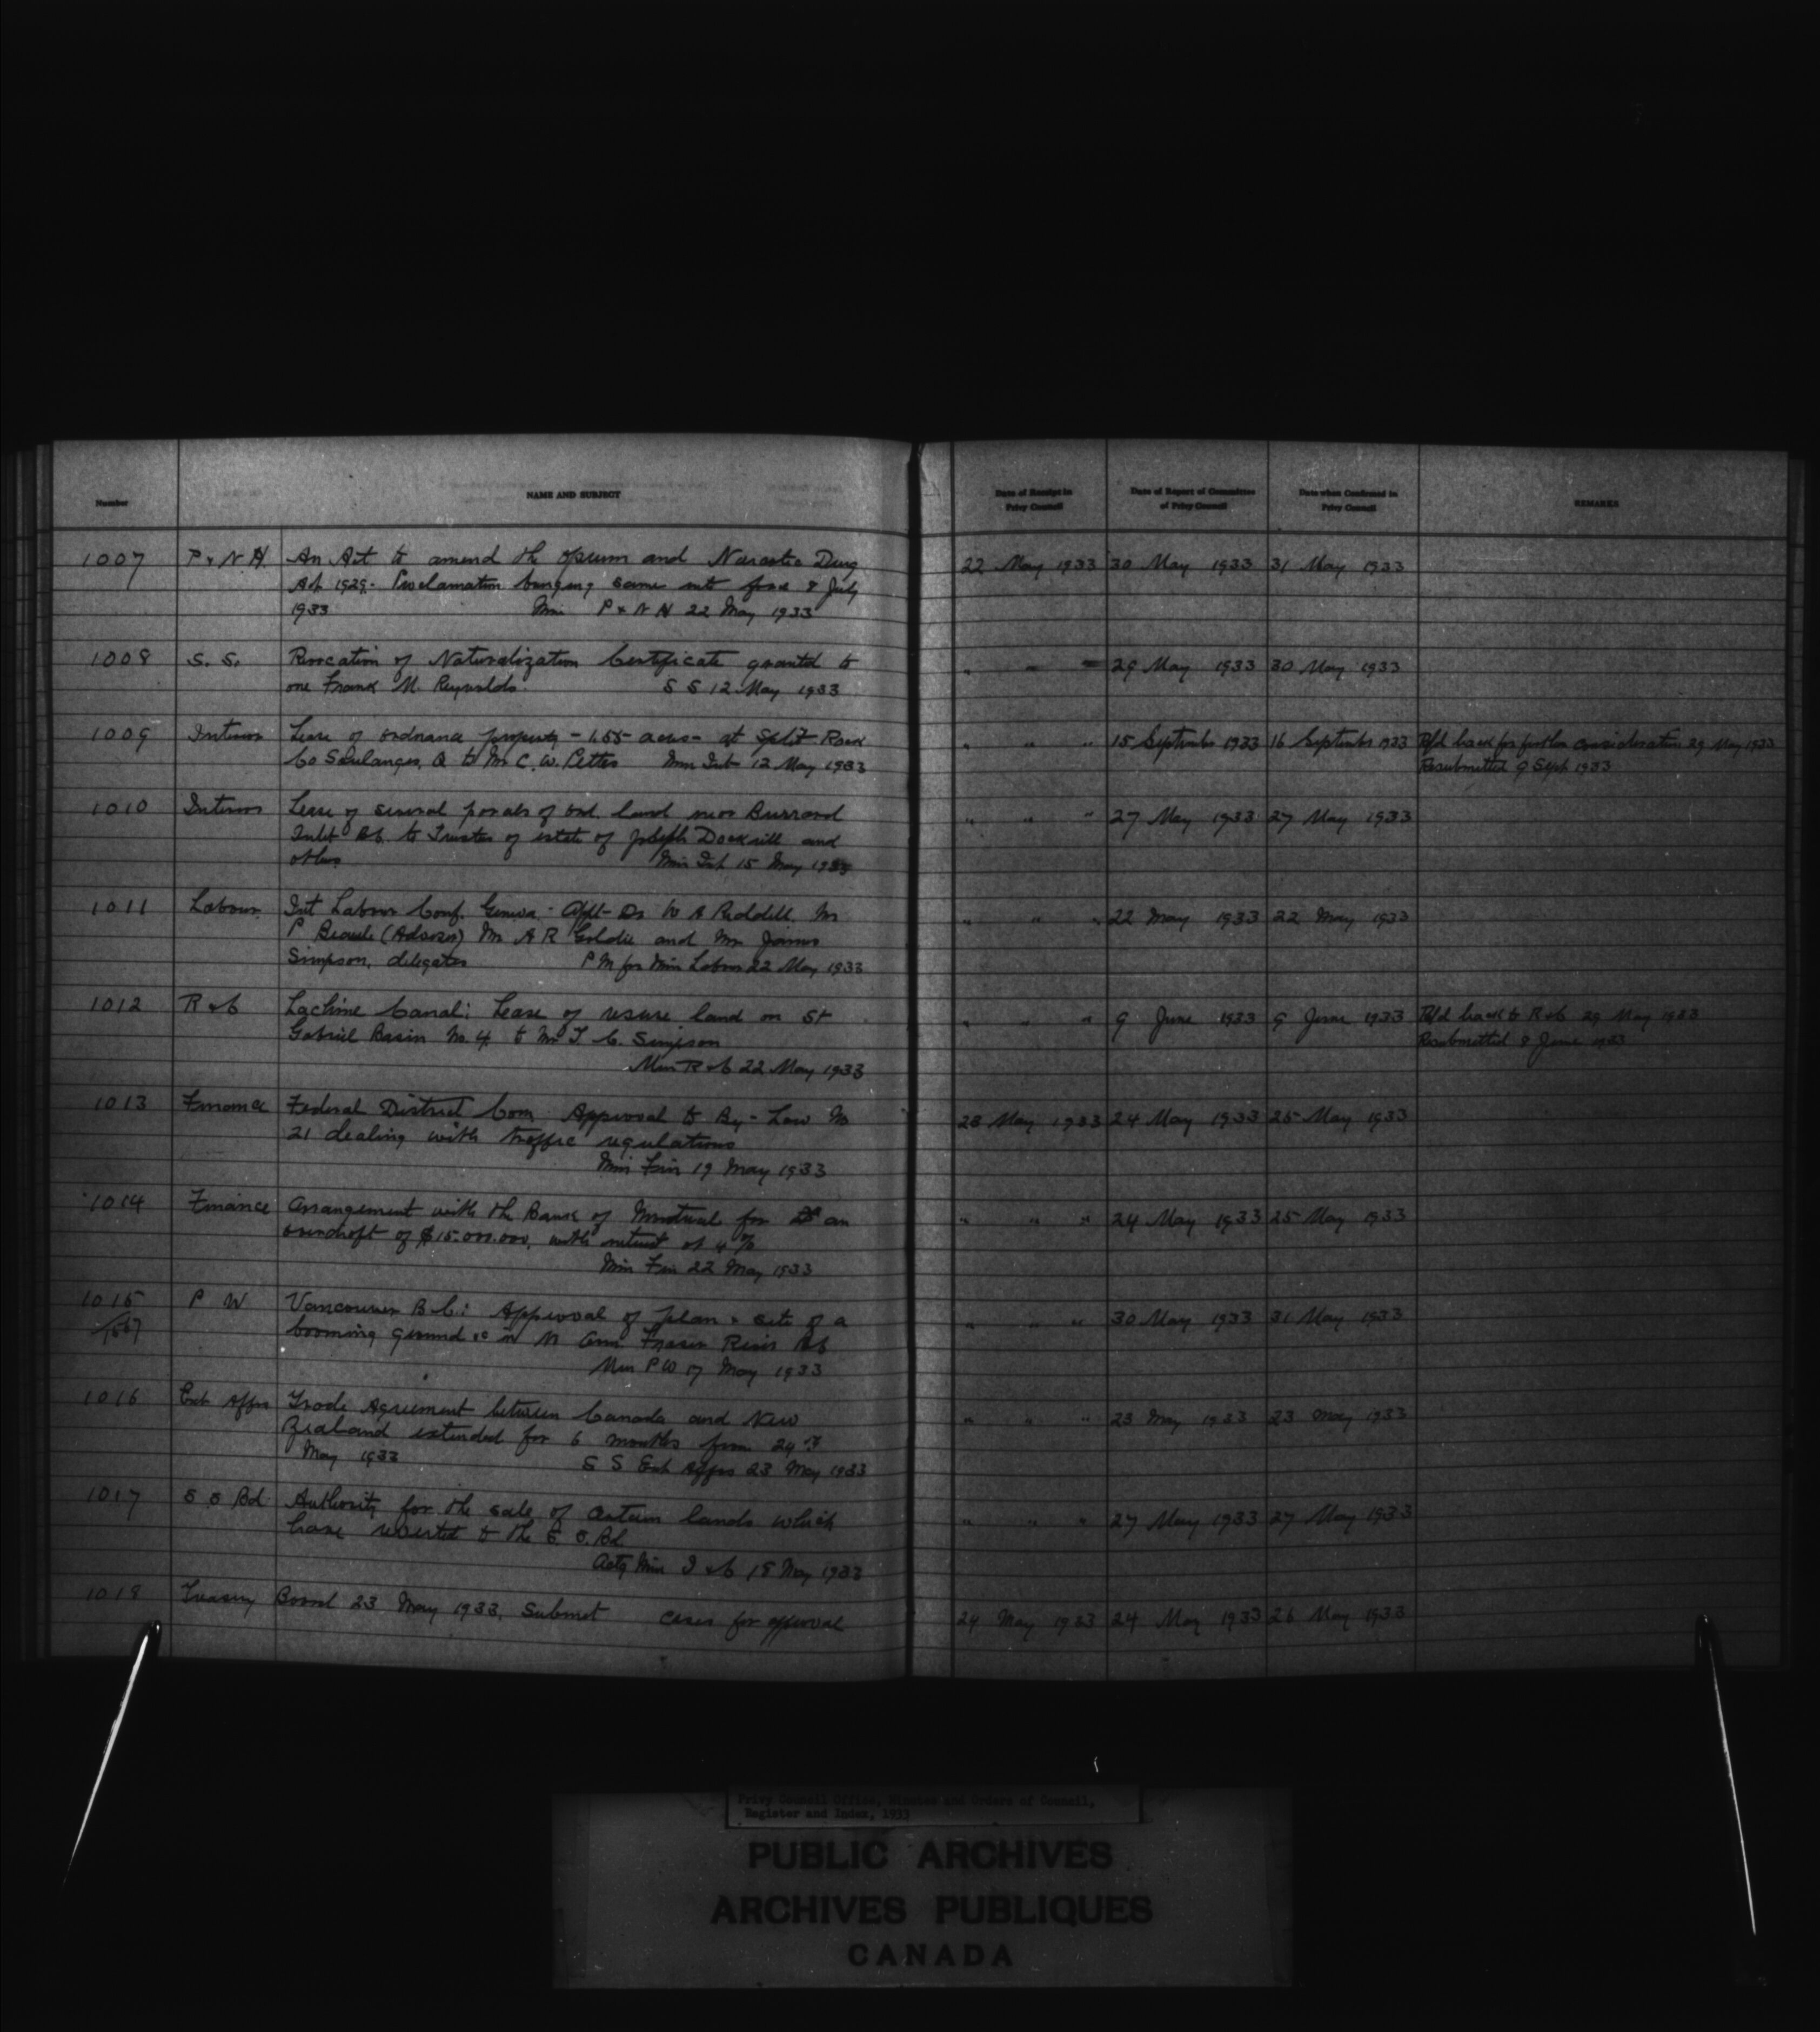 Number NAME AND SUBJECT Date of Receipt in Privy Council Date of Report of Committee of Privy Council Date when Confirmed in Privy Council REMARKS
1007 P & N H. An Act to amend the Opium and Narcotic Drug 22 May 1933 30 May 1933 31 May 1933
Act 1929. Proclamation bringing same into force 8 July
1933 Min P & N H 22 May 1933
1008 S. S. Revocation of Naturalization Certificate granted to " " " 29 May 1933 30 May 1933
one Frank M. Reynolds. S S 12 May 1933
1009 Interior Lease of ordnance property - 1.55 acres - at Split Rock " " " 15 September 1933 16 September 1933 Refd back for further consideration 29 May 1933
Co Soulanges, Q to Mr C. W. Pettes Min Int 12 May 1933 Resubmitted 9 Sept 1933
1010 Interior Lease of several parcels of ord. land near Burrard " " " 27 May 1933 27 May 1933
Inlet B.C. to Trustees of estate of Joseph Dockrill and
others Min Int 15 May 1933
1011 Labour Int Labour Conf. Geneva - Appt - Dr W A Riddell, Mr " " " 22 May 1933 22 May 1933
P (Advisor) Mr A R Goldie and Mr James
Simpson, delegates P M for Min Labour 22 May 1933
1012 R & C Lachine Canal: Lease of reserve land on St " " " 9 June 1933 9 June 1933 Refd back to R & C 29 May 1933
Gabriel Basin No. 4 to Mr T. C. Simpson Resubmitted 8 June 1933
Min R & C 22 May 1933
1013 Finance Federal District Com Approval to By-Law No 23 May 1933 24 May 1933 25 May 1933
21 dealing with traffic regulations
Min Fin 19 May 1933
1014 Finance Arrangement with the Bank of Montreal for an " " " 24 May 1933 25 May 1933
overdraft of $15.000.000, with interest at 4 %
Min Fin 22 May 1933
1015 P W Vancouver B.C.: Approval of plan & site of a " " " 30 May 1933 31 May 1933
1567 booming ground &c in N Arm Fraser River B.C.
Min P W 17 May 1933
1016 Ext Affrs Trade Agreement between Canada and New " " " 23 May 1933 23 May 1933
Zealand extended for 6 months from 24th
May 1933 S S Ext Affrs 23 May 1933
1017 S S Bd. Authority for the sale of certain lands which " " " 27 May 1933 27 May 1933
have reverted to the S. S. Bd.
Actg Min I & C 18 May 1933
1018 Treasury Board 23 May 1933, Submit cases for approval 24 May 1933 24 May 1933 26 May 1933
Privy Council Office, Minutes and Orders of Council,
Register and Index, 1933
PUBLIC ARCHIVES
ARCHIVES PUBLIQUES
CANADA